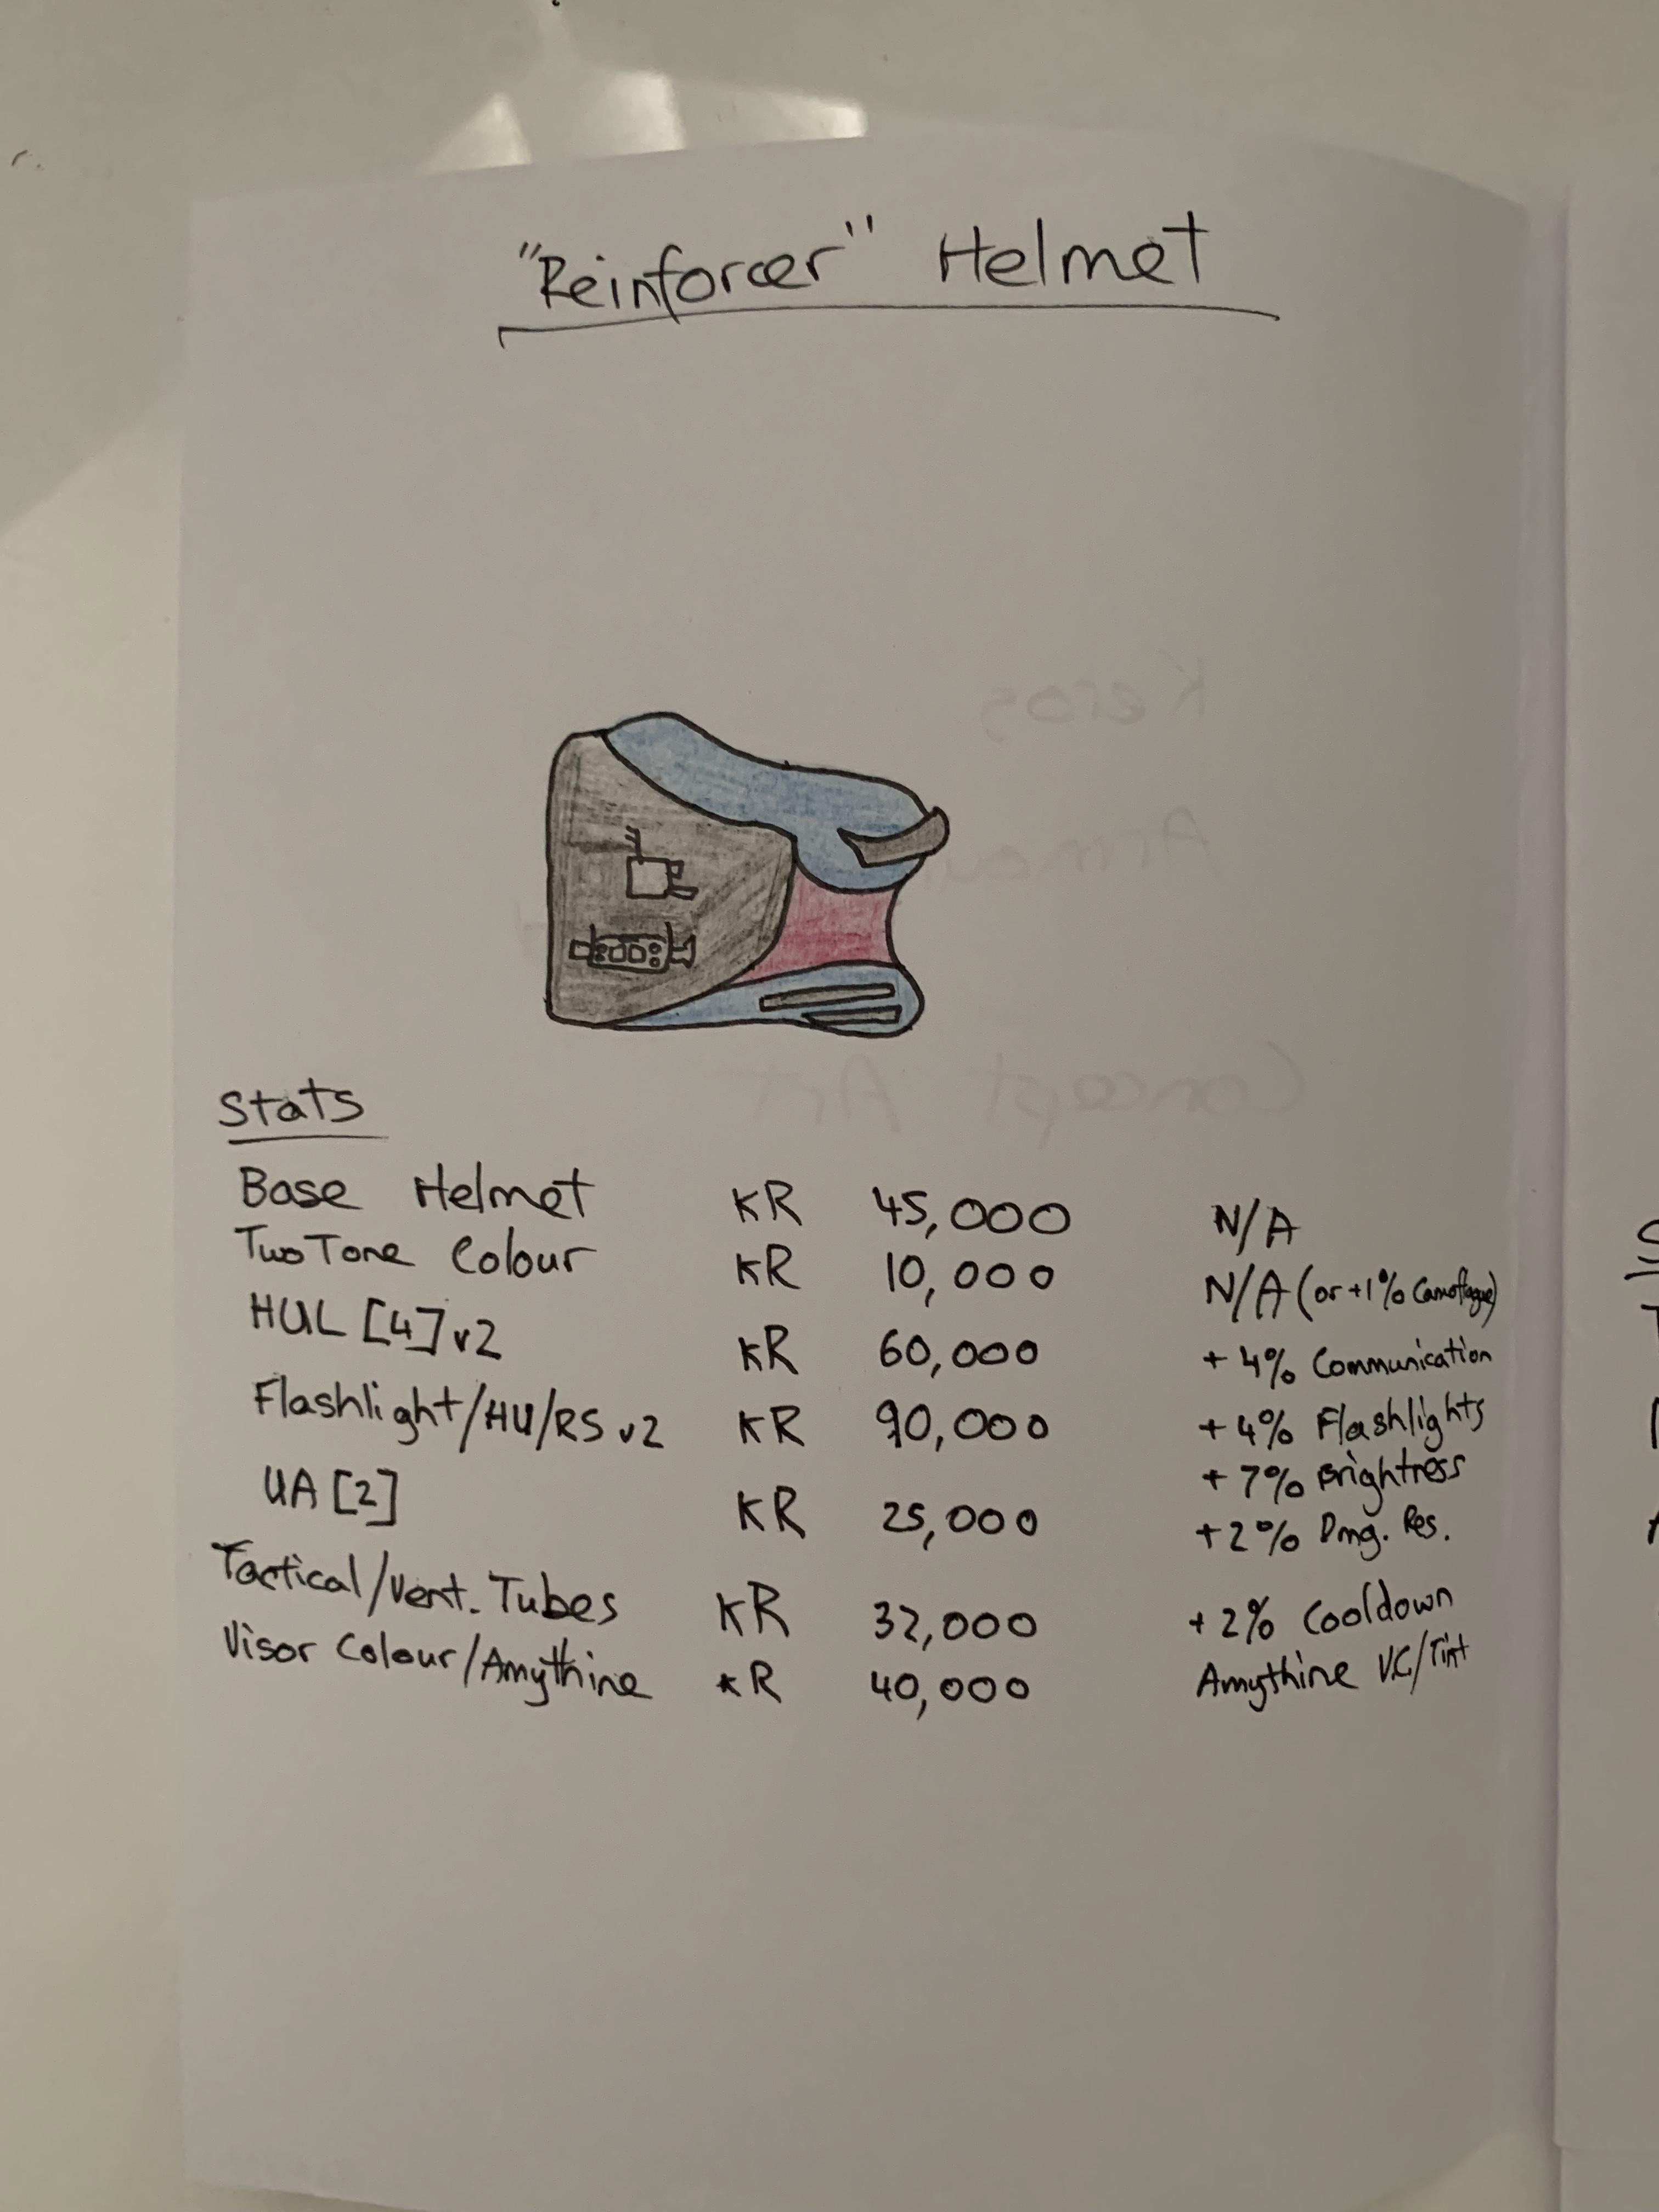 "Reinforcer" Helmet
Keros
Armour
Concept Art
Stats
Base Helmet KR 45,000 N/A
Two Tone Colour KR 10,000 N/A (or +1% Camoflague)
HUL [4] v2 KR 60,000 + 4% Communication
Flashlight/HU/RS v2 KR 90,000 + 4% Flashlights
+ 7% Brightness
UA [2] KR 25,000 +2% Dmg. Res.
Tactical/Vent. Tubes KR 32,000 + 2% Cooldown
Visor Colour/Amythine KR 40,000 Amythine V.C/Tint